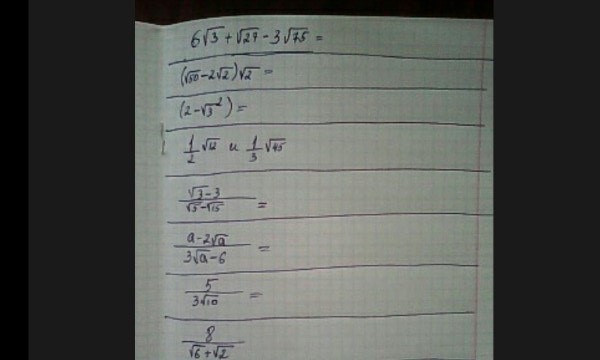 6√3 + √27 - 3√75 =
(√50 - 2√2)√2 =
(2 - √3²) =
1/2 √12 и 1/3 √45
(√3 - 3)/(√5 - √15) =
(a - 2√a)/(3√a - 6) =
5/(3√10) =
8/(√6 + √2)